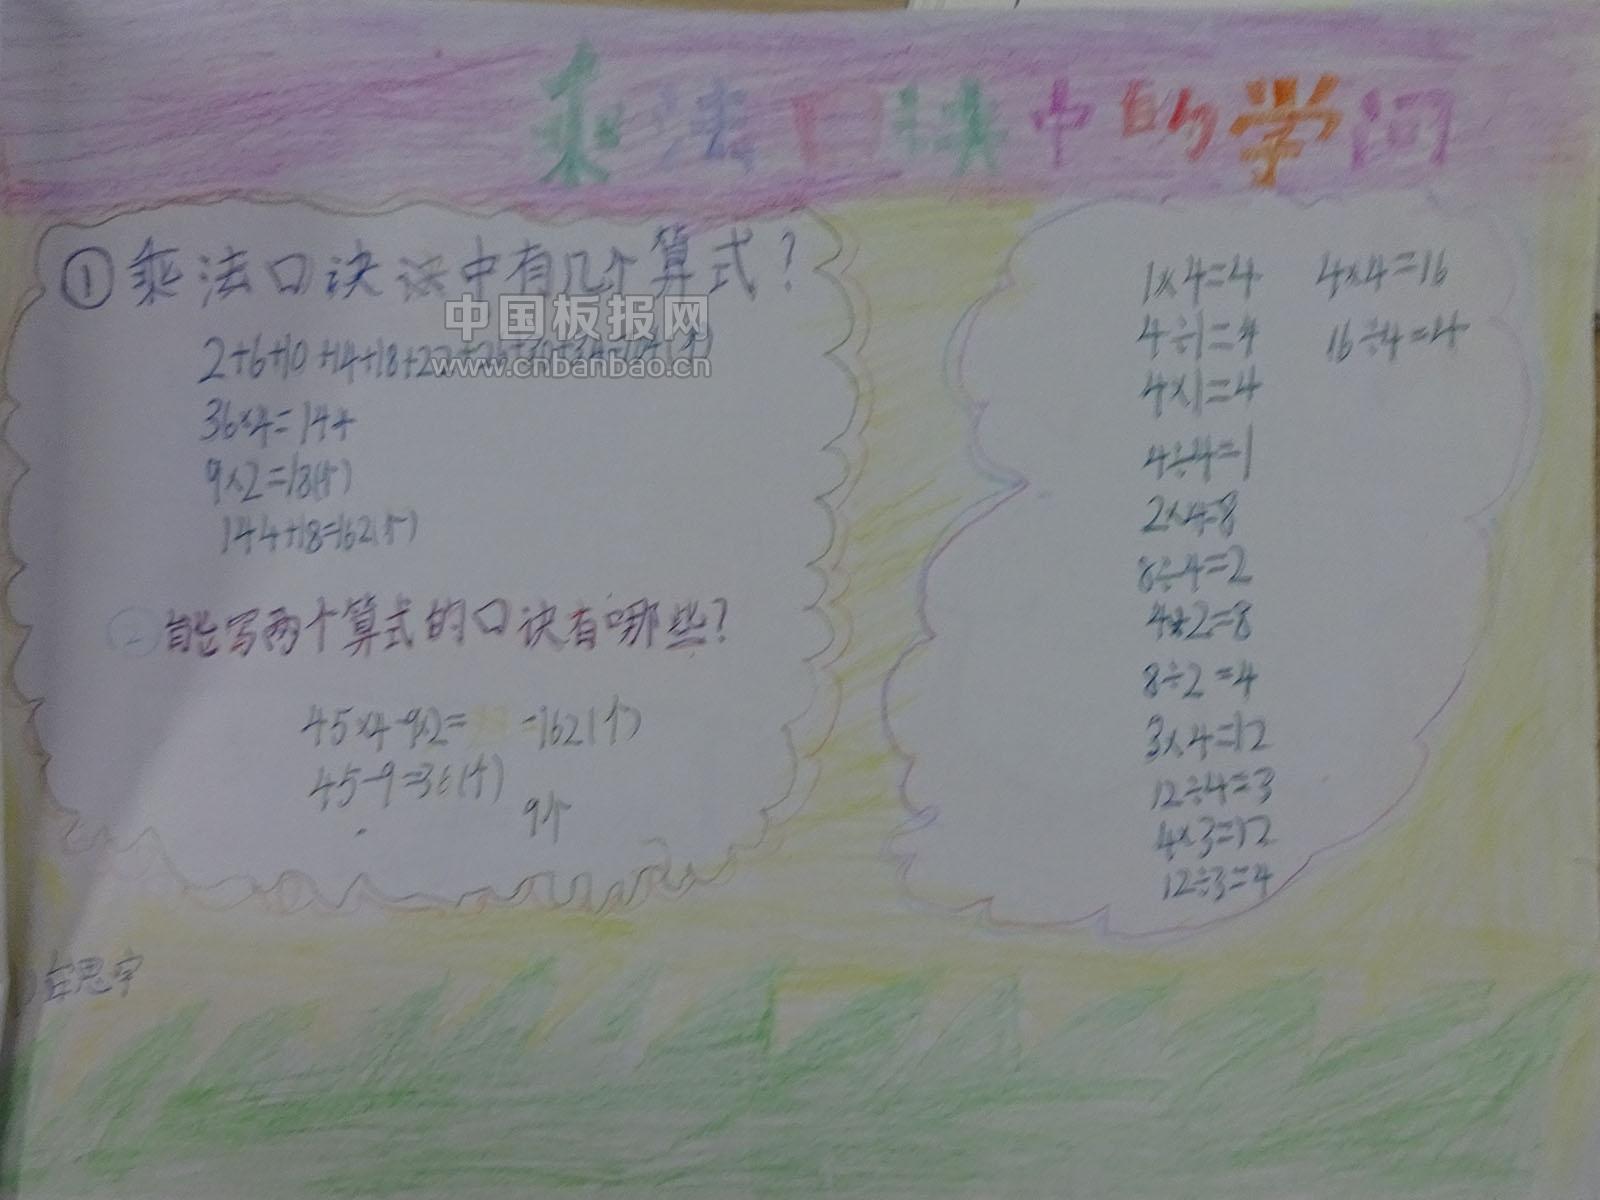 乘法口诀中的学问
①乘法口诀中有几个算式？
中国板报网
www.cnbanbao.cn
2+6+10+14+18+22+26+30+34=162(个)
36×4=144
9×2=18(个)
144+18=162(个)
②能写两个算式的口诀有哪些?
45×4-9×2= =162(个)
45-9=36(个)
9个
1×4=4
4÷1=4
4×1=4
4÷4=1
2×4=8
8÷4=2
4×2=8
8÷2=4
3×4=12
12÷4=3
4×3=12
12÷3=4
4×4=16
16÷4=4
思宇